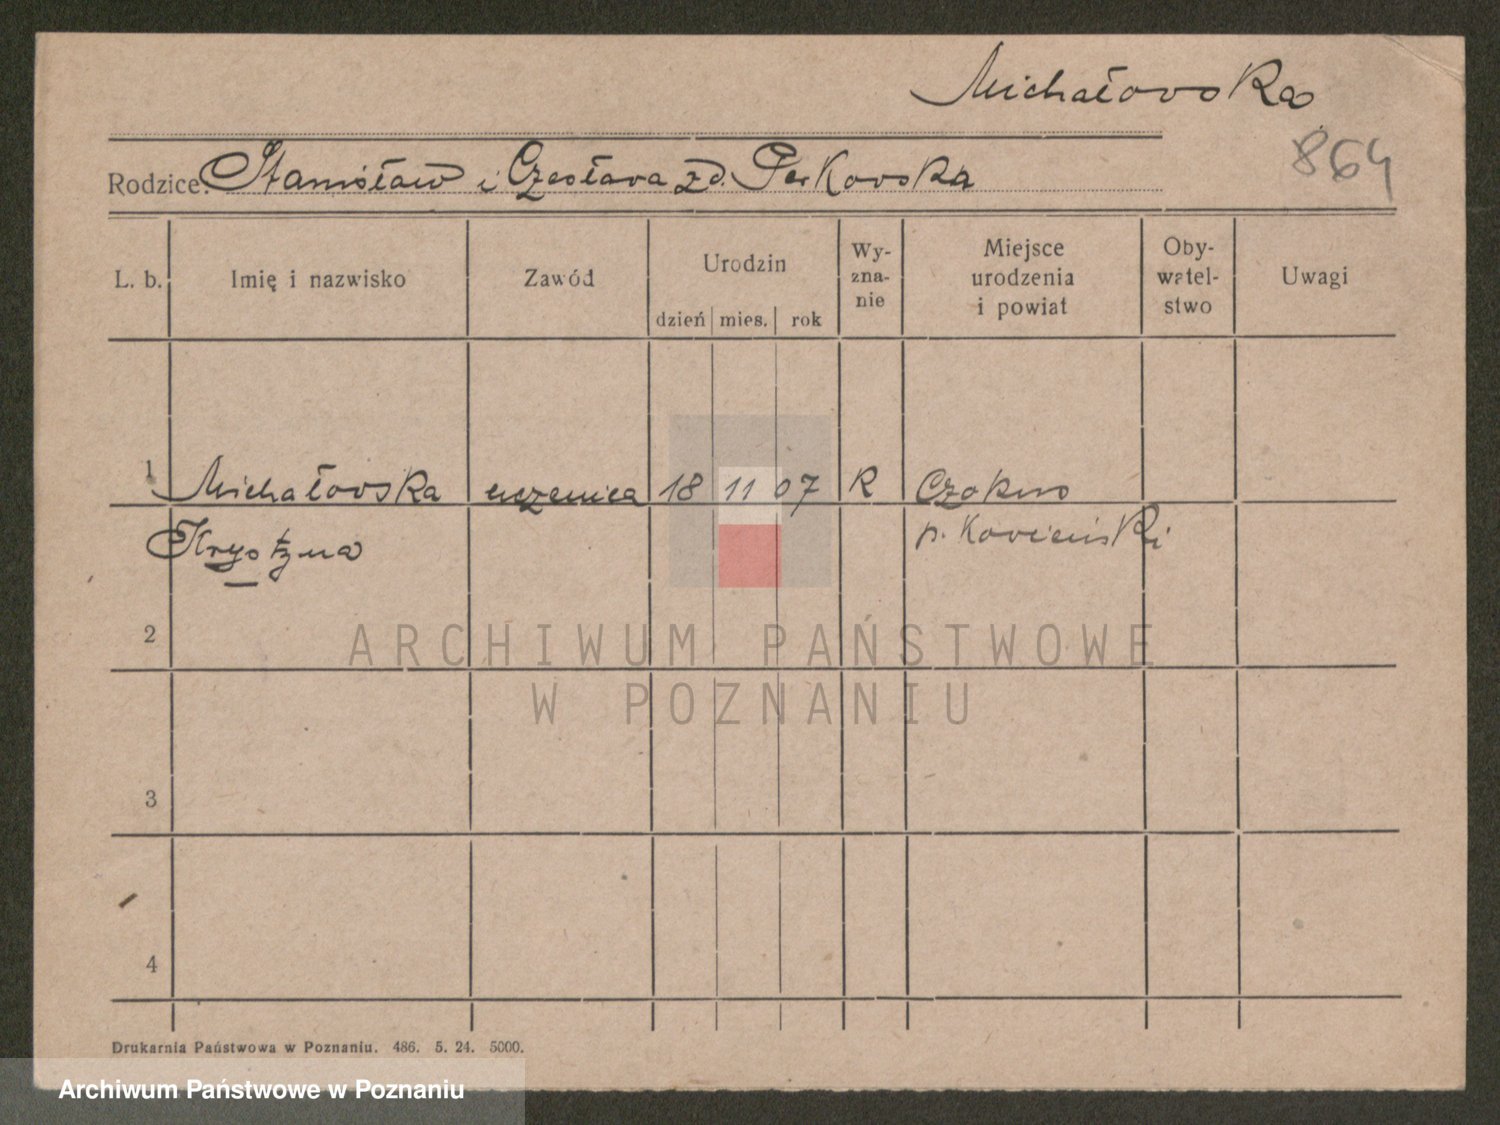 Michałowska
864
Rodzice: Stanisław i Czesława zd. Perkowska
L. b. Imię i nazwisko Zawód Urodzin Wy-zna-nie Miejsce urodzenia i powiat Oby-watel-stwo Uwagi
dzień mies. rok
1 Michałowska uczenica 18 11 07 R
Krystyna p. Kowieński
2
ARCHIWUM PAŃSTWOWE
W POZNANIU
3
4
Drukarnia Państwowa w Poznaniu. 486. 5. 24. 5000.
Archiwum Państwowe w Poznaniu